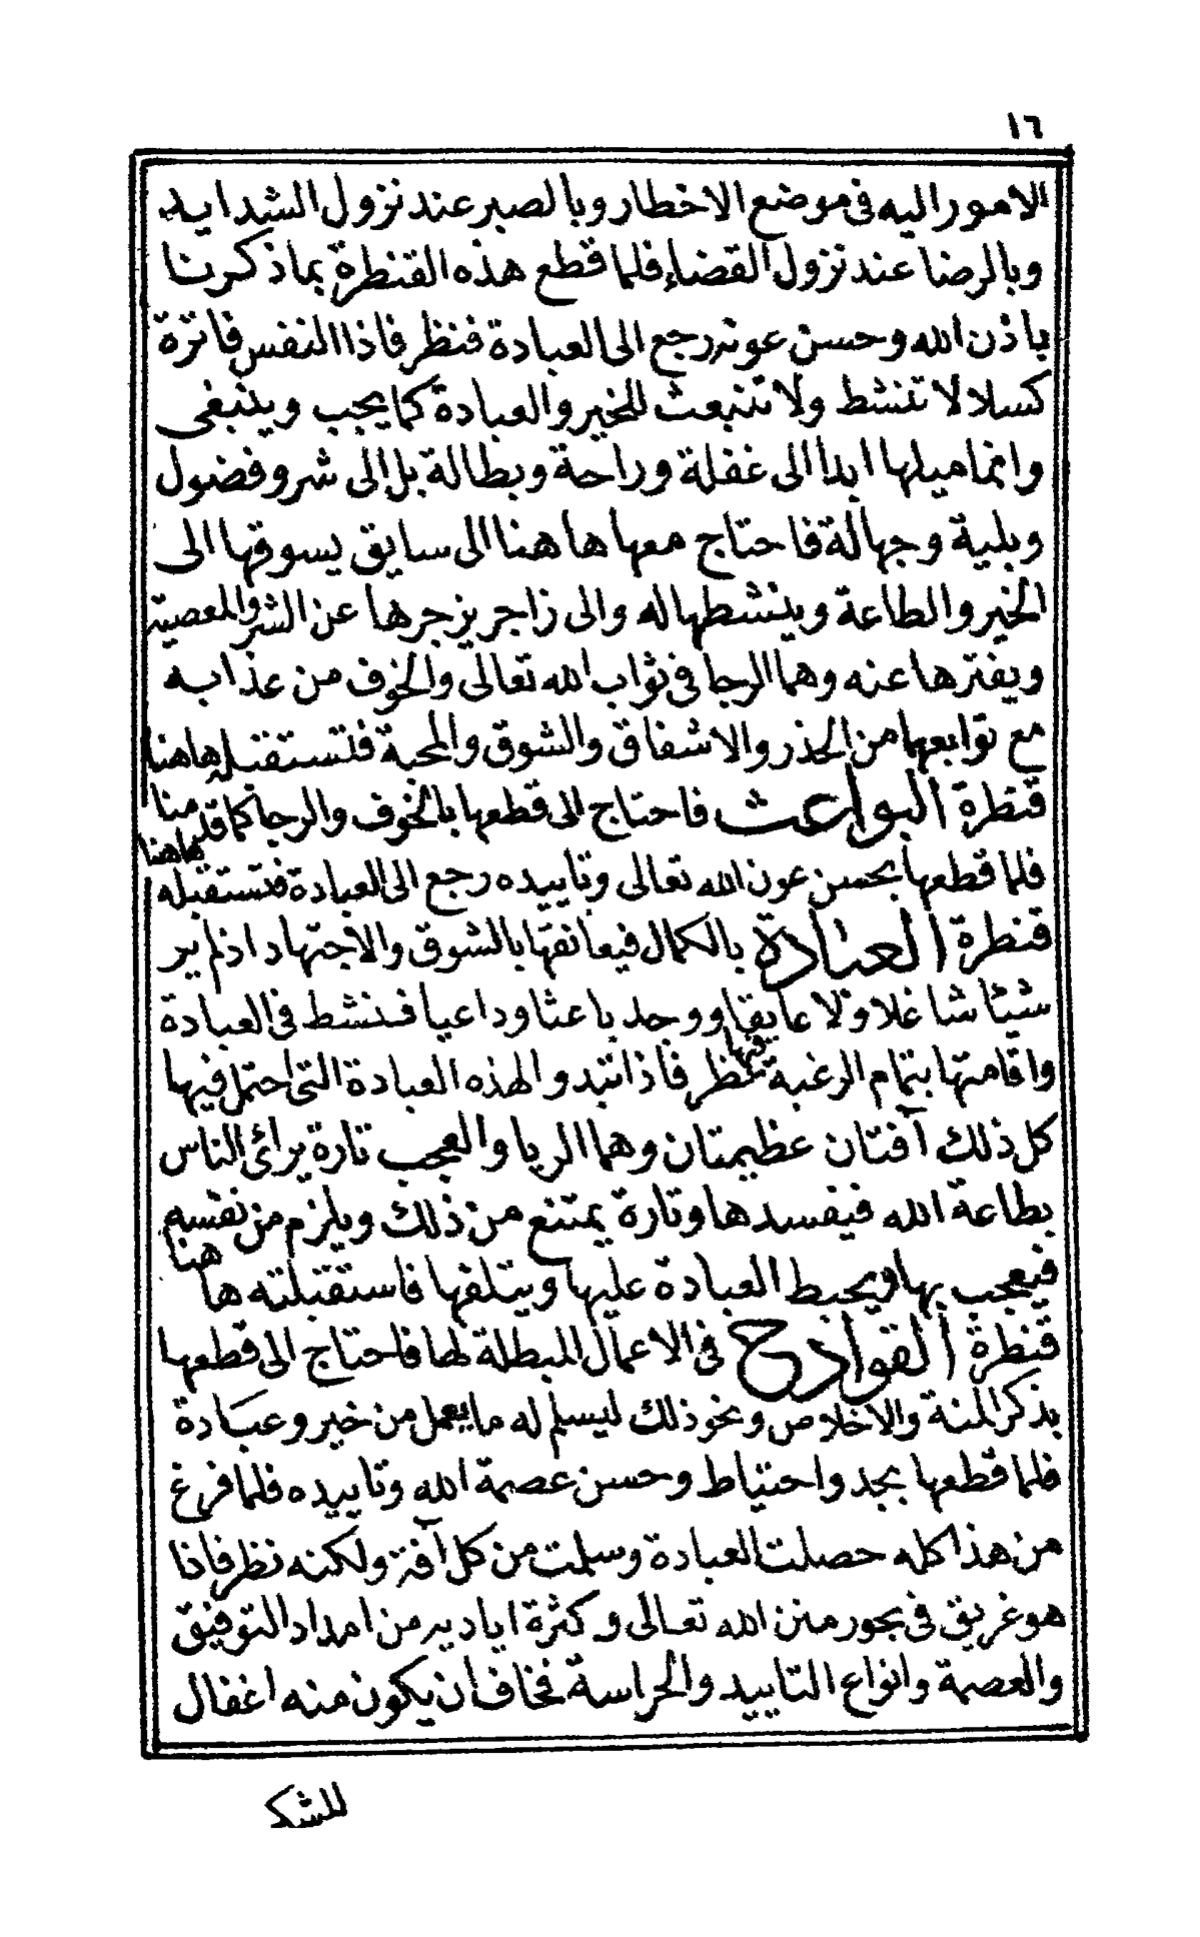 ١٦
الامور اليه فى موضع الاخطار وبالصبر عند نزول الشدايد
وبالرضا عند نزول القضاء فلما قطع هذه القنطرة بما ذكرنا
باذن الله وحسن عونه رجع الى العبادة فنظر فاذا النفس فاترة
كسلا لا تنشط ولا تنبعث للخير والعبادة كما يجب وينبغى
وانما ميلها ابدا الى غفلة وراحة وبطالة بل الى شر وفضول
وبلية وجهالة فاحتاج معها هاهنا الى سايق يسوقها الى
الخير والطاعة وينشطها له والى زاجر يزجرها عن الشر والمعصية
ويفترها عنه وهما الرجا فى ثواب الله تعالى والخوف من عذابه
مع توابعهما من الحذر والاشفاق والشوق والمحبة فتستقبله هاهنا
قنطرة البواعث فاحتاج الى قطعها بالخوف والرجا كما قدمنا
هاهنا
فلما قطعها بحسن عون الله تعالى وتاييده رجع الى العبادة فتستقبله
قنطرة العبادة بالكمال فيعانقها بالشوق والاجتهاد اذ لم ير
شيئا شاغلا ولا عايقا ووجد باعثا وداعيا فنشط فى العبادة
واقامتها بتمام الرغبة فيها نظر فاذا تبدو لهذه العبادة التى احتمل فيها
كل ذلك آفتان عظيمتان وهما الريا والعجب تارة يرائى الناس
بطاعة الله فيفسدها وتارة يمتنع من ذلك ويلزم من نفسه
فيعجب بها ويحبط العبادة عليها ويتلفها فاستقبلته ها هنا
قنطرة القوادح فى الاعمال المبطلة لها فاحتاج الى قطعها
بذكر المنة والاخلاص ونحو ذلك ليسلم له ما يعمل من خير وعبادة
فلما قطعها بجد واحتياط وحسن عصمة الله وتاييده فلما فرغ
من هذا كله حصلت العبادة وسلمت من كل آفة ولكنه نظر فاذا
هو غريق فى بحور منن الله تعالى وكثرة اياديه من امداد التوفيق
والعصمة وانواع التاييد والحراسة فخاف ان يكون منه اغفال
للشكر